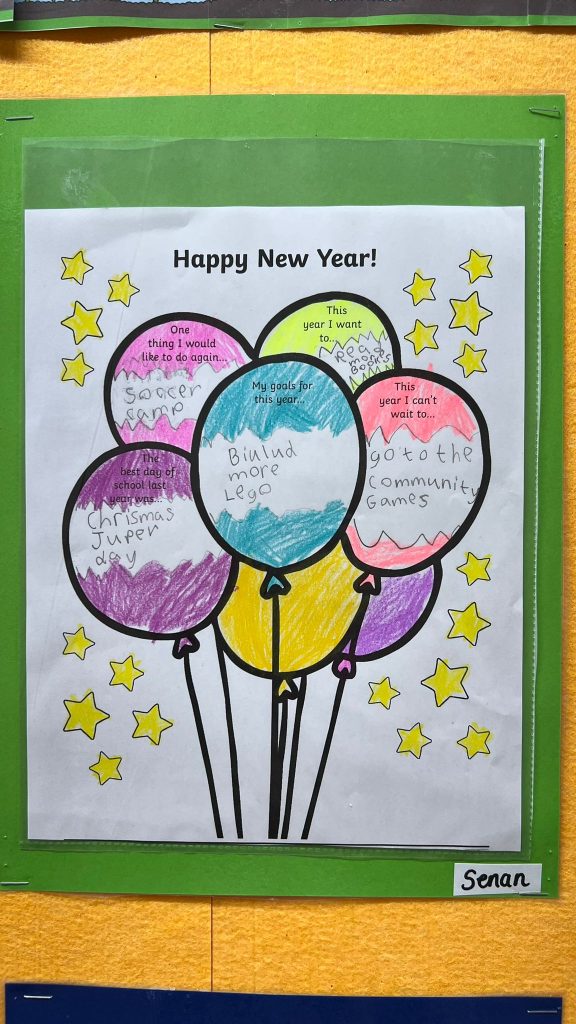 Happy New Year!
One
thing I would
like to do again...
soccer
camp
This
year I want
to...
Read
more
Books
My goals for
this year...
Biulud
more
Lego
This
year I can't
wait to...
go to the
Community
Games
The
best day of
school last
year was...
Chrismas
Juper
day
Senan